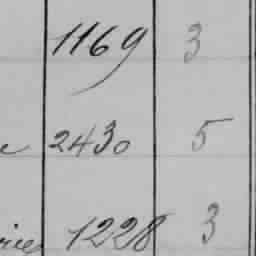 1169 3
2430 5
1228 3